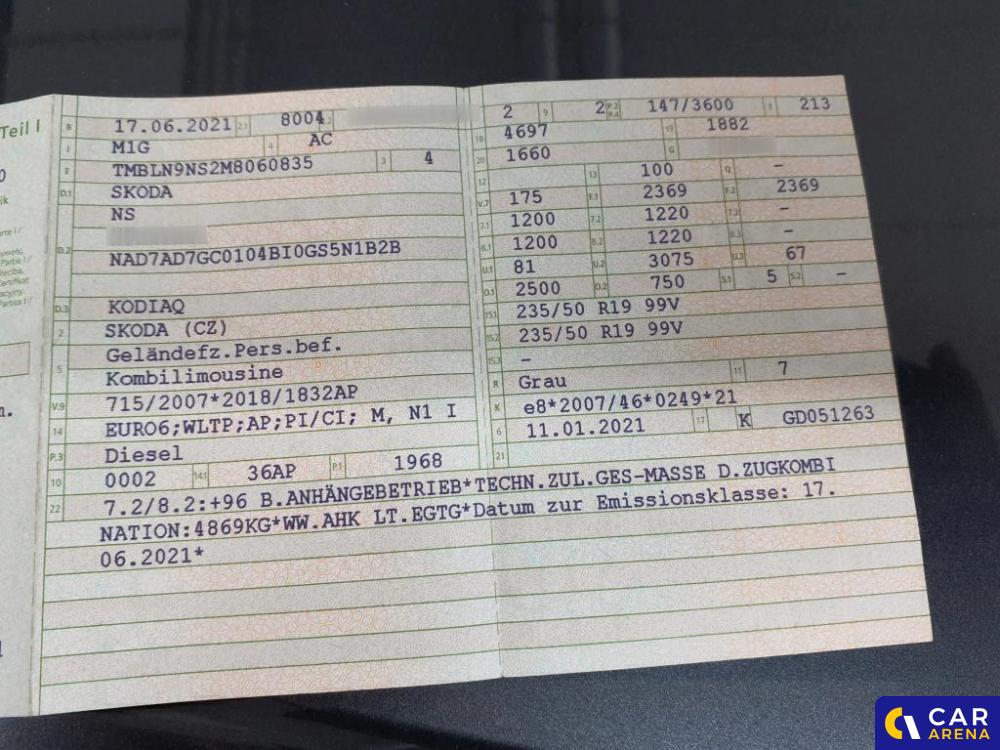 Teil I
B 17.06.2021 2.1 8004 2.2
J M1G 4 AC
E TMBLN9NS2M8060835 3 4
D.1 SKODA
NS
D.2
NAD7AD7GC0104BI0GS5N1B2B
D.3 KODIAQ
2 SKODA (CZ)
Geländefz.Pers.bef.
5 Kombilimousine
V.9 715/2007*2018/1832AP
14 EURO6;WLTP;AP;PI/CI; M, N1 I
P.3 Diesel
10 0002 14.1 36AP P.1 1968
22 7.2/8.2:+96 B.ANHÄNGEBETRIEB*TECHN.ZUL.GES-MASSE D.ZUGKOMBI
NATION:4869KG*WW.AHK LT.EGTG*Datum zur Emissionsklasse: 17.
06.2021*
2 9 2 P.2 P.4 147/3600 T 213
18 4697 19 1882
20 1660 G
12 13 100 Q -
V.7 175 F.1 2369 F.2 2369
7.1 1200 7.2 1220 7.3 -
8.1 1200 8.2 1220 8.3 -
U.1 81 U.2 3075 U.3 67
O.1 2500 O.2 750 S.1 5 S.2 -
15.1 235/50 R19 99V
15.2 235/50 R19 99V
15.3 -
R Grau 11 7
K e8*2007/46*0249*21
6 11.01.2021 17 K GD051263
21
CAR
ARENA